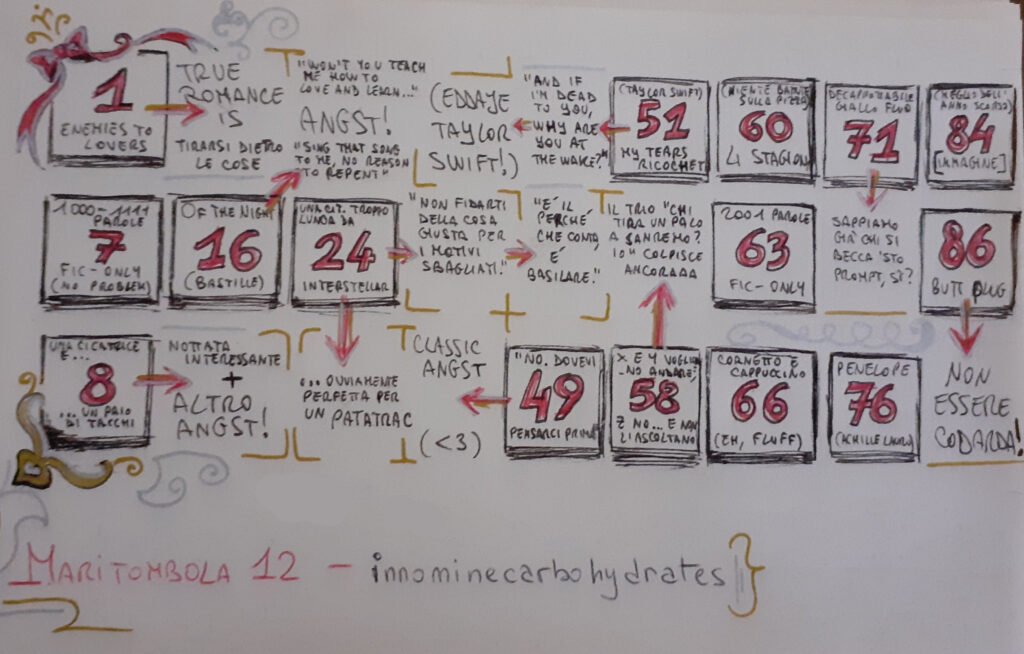 1
ENEMIES TO
LOVERS
TRUE
ROMANCE
IS
TIRARSI DIETRO
LE COSE
"WON'T YOU TEACH
ME HOW TO
LOVE AND LEARN..."
ANGST!
"SING THAT SONG
TO ME, NO REASON
TO REPENT"
(EDDAJE
TAYLOR
SWIFT!)
"AND IF
I'M DEAD
TO YOU,
WHY ARE
YOU AT
THE WAKE?"
(TAYLOR SWIFT)
51
MY TEARS
RICOCHET
(NIENTE BATUTE
SULLA PIZZA)
60
4 STAGIONI
DECAPPOTTABILE
GIALLO FLUO
71
(MEGLIO DELL'
ANNO SCORSO)
84
[IMMAGINE]
1000-1111
PAROLE
7
FIC-ONLY
(NO PROBLEM)
OF THE NIGHT
16
(BASTILLE)
UNA CIT. TROPPO
LUNGA DA
24
INTERSTELLAR
"NON FIDARTI
DELLA COSA
GIUSTA PER
I MOTIVI
SBAGLIATI."
"È IL
PERCHÉ
CHE CONTA,
È
BASILARE."
IL TRIO "CHI
TIRA UN PALO
A SANREMO?
IO" COLPISCE
ANCORAAA
2001 PAROLE
63
FIC-ONLY
SAPPIAMO
GIÀ CHI SI
BECCA 'STO
PROMPT, SÌ?
86
BUTT PLUG
UNA CICATRICE
E...
8
... UN PAIO
DI TACCHI
NOTTATA
INTERESSANTE
+
ALTRO
ANGST!
... OVVIAMENTE
PERFETTA PER
UN PATATRAC
CLASSIC
ANGST
(<3)
"NO. DOVEVI
49
PENSARCI PRIMA"
X E Y VOGLIO
-NO ANDARE,
58
Z NO... E NON
L'ASCOLTANO
CORNETTO E
CAPPUCCINO
66
(EH, FLUFF)
PENELOPE
76
(ACHILLE LAURO)
NON
ESSERE
CODARDA!
MARITOMBOLA 12 - innominecarbohydrates